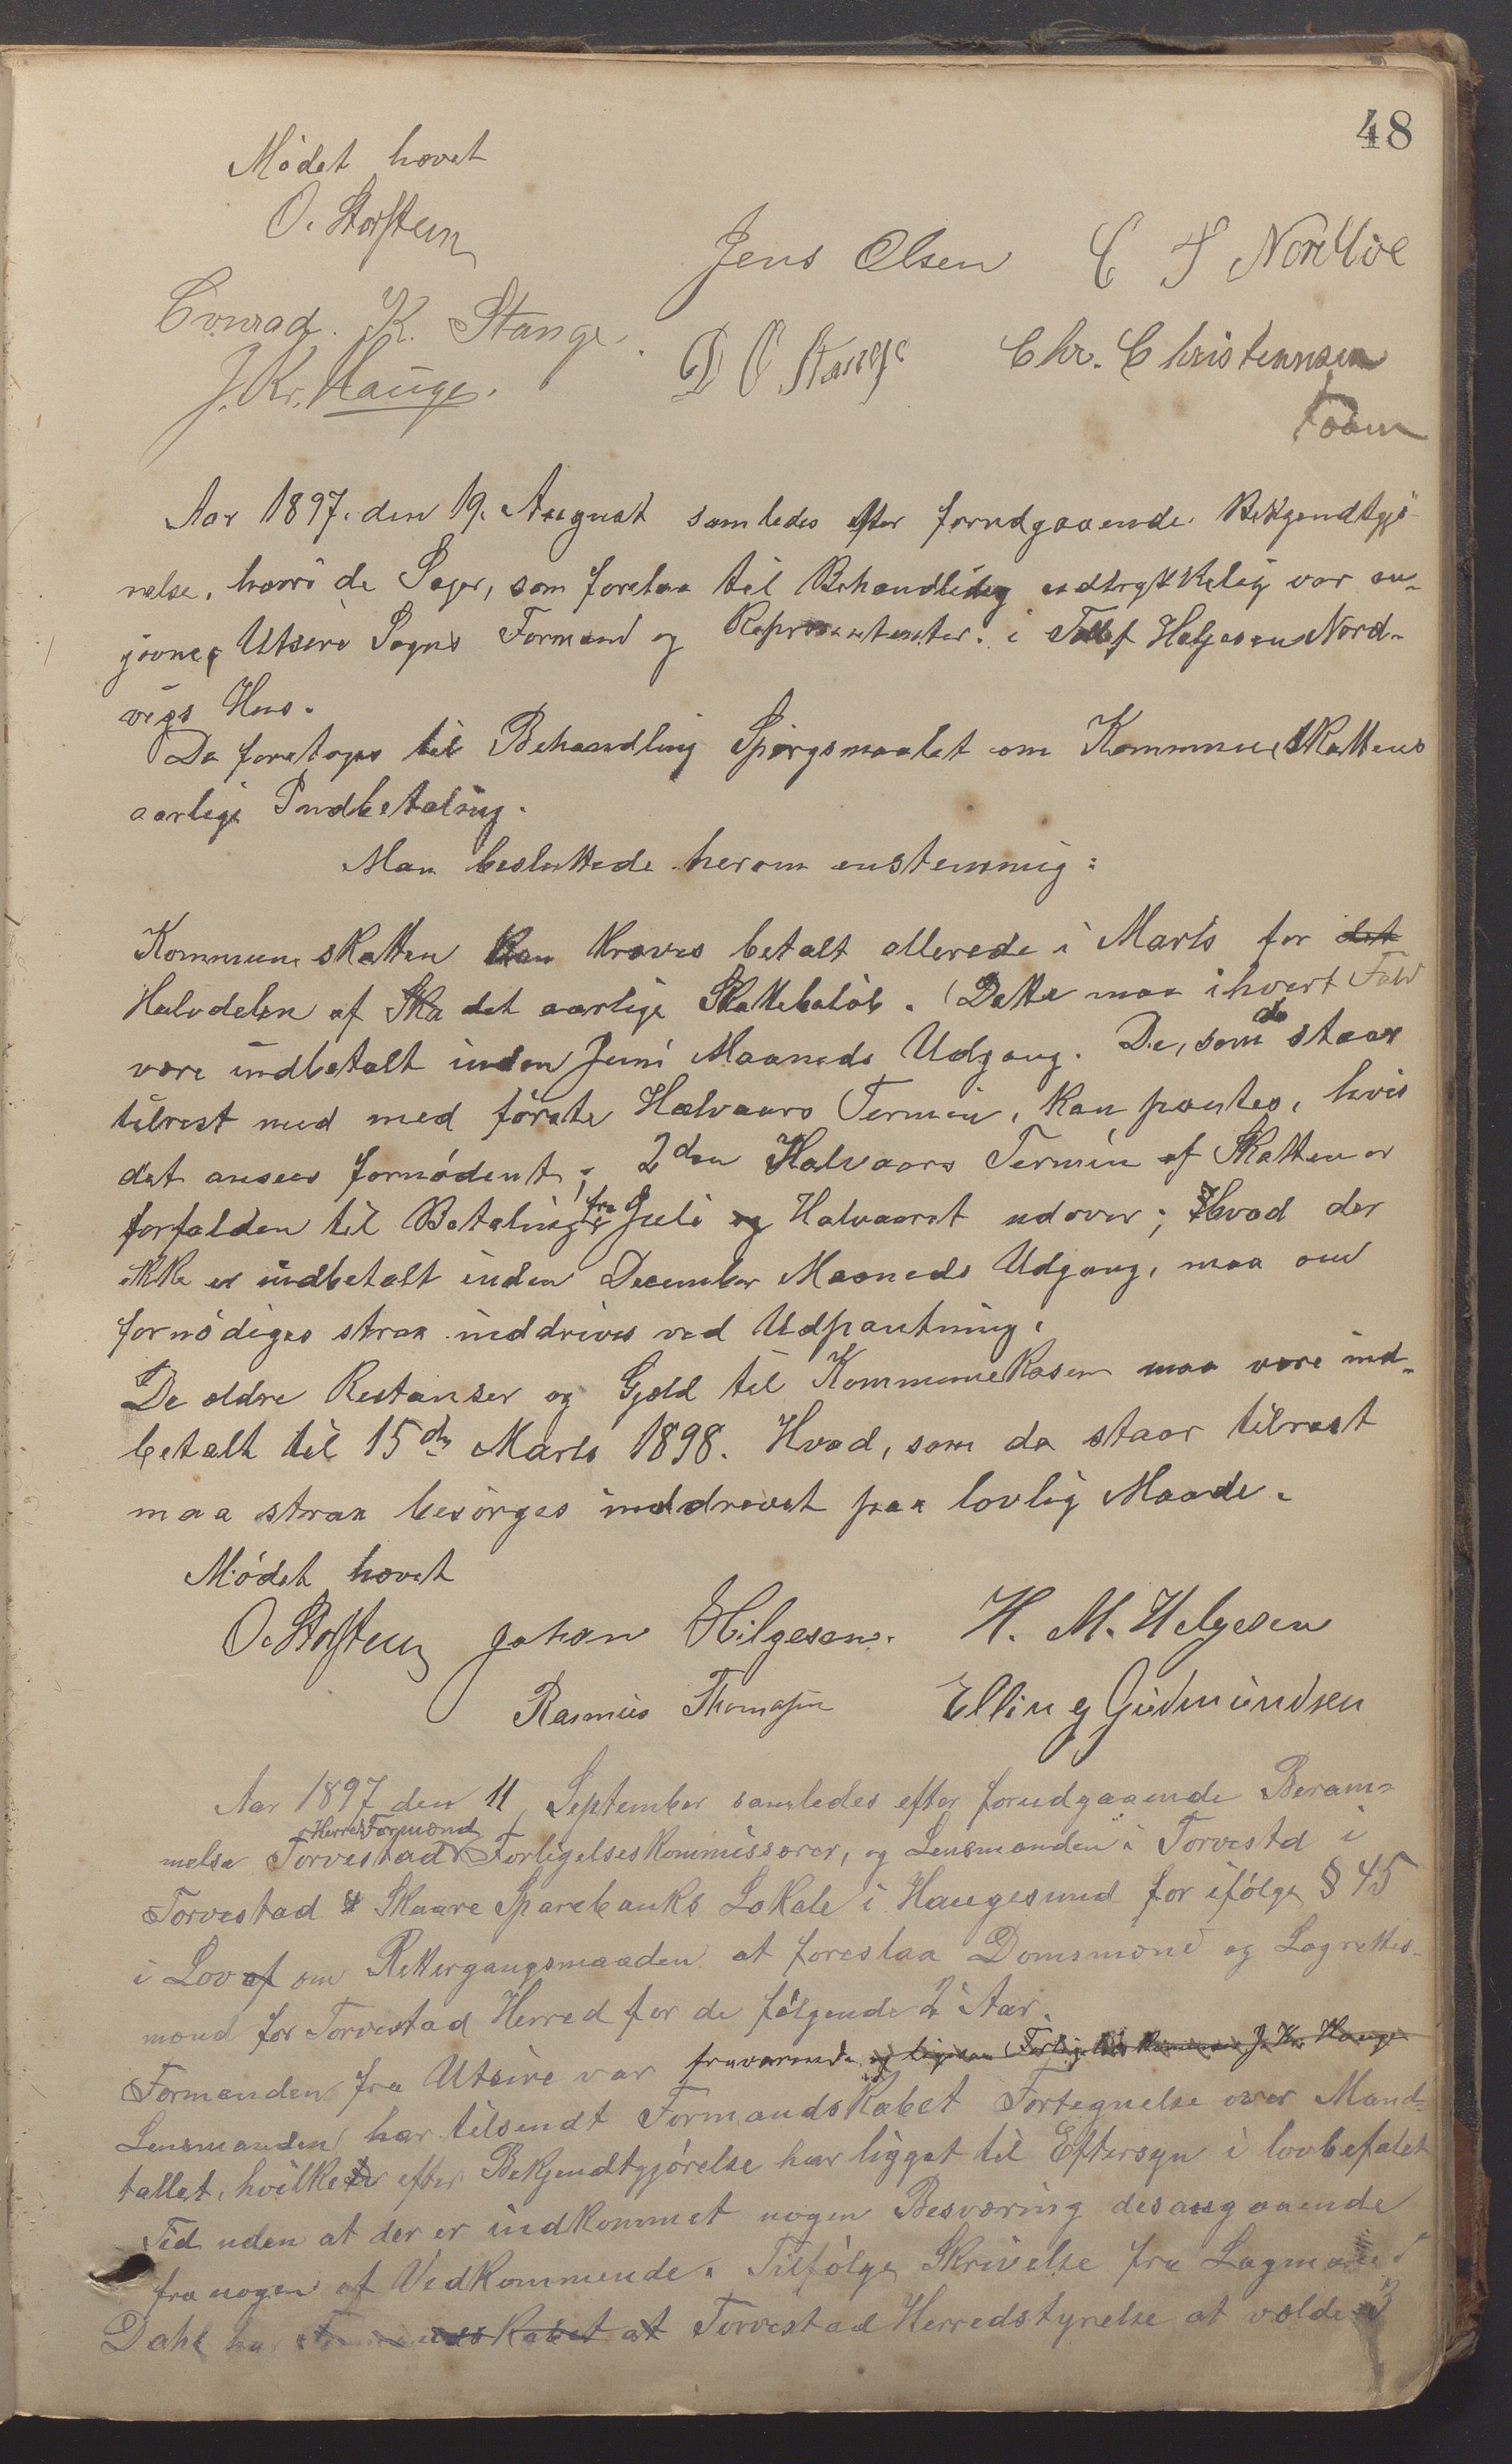 48
Mødet hævet
O. Storsteun
Jens Olsen C T Nordvie
Conrad. K. Stange.
D C Stange Chr. Christennsen
J. Kr. Hauge.
Aar 1897. den 19. August samledes efter forudgaaende Bekjendtgjö-
relse, hvori de Sager, som forelaa til Behandling udtrykkelig var an-
givne, Utsire Sogns Formænd og Repræsentanter. i Tollef Helgesens Nord-
vigs Hus.
Da foretoges til Behandling Spörgsmaalet om Kommuneskattens
aarlige Indbetaling.
Man besluttede herom enstemmig:
Kommuneskatten kan kræves betalt allerede i Marts for det
Halvdelen af Ska det aarlige Skattebelöb. Dette maa ihvert Fald
være indbetalt inden Juni Maaneds Udgang. De, som da staar
tilrest med med förste Halvaars Termin, kan pantes, hvis
det ansees fornödent; 2den Halvaars Termin af Skatten er
forfalden til Betaling fra Juli og Halvaaret udover; Hvad der
ikke er indbetalt inden December Maaneds Udgang, maa om
fornödiges strax inddrives ved Udpantning.
De ældre Restanser og Gjæld til Kommunekasen maa være ind-
betalt til 15de Marts 1898. Hvad, som da staar tilrest
maa strax besörges inddrevet paa lovlig Maade.
Mødet hævet
O. Storsteun Johan Hilgesen. H. M. Helgesen
Rasmus Thomassen Elling Gudmundsen
Aar 1897 den 11 September samledes efter forudgaaende Beram-
melse Torvestad Herreds Formænd Forligelseskommissærer, og Lensmanden i Torvestd i
Torvestad & Skaare Sparebanks Lokale i Haugesund for ifölge § 45
i Lov af om Rettergangsmaaden at foreslaa Domsmænd og Lagrettes-
mænd for Torvestad Herred for de følgende 2 Aar.
Formanden fra Utsire var fraværende og ligesaa Forligelses Kommissær J. Kr. Hauge
Lensmanden har tilsendt Formandskabet Fortegnelse over Mand-
tallet, hvilket efter Bekjendtgjörelse har ligget til Eftersyn i lovbefalet
Tid uden at der er indkommet nogen Besværing desangaaende
fra nogen af Vedkommende. Tilfölge Skrivelse fra Lagmand
Dahl har Formandskabet at Torvestad Herredstyrelse at vælde 3